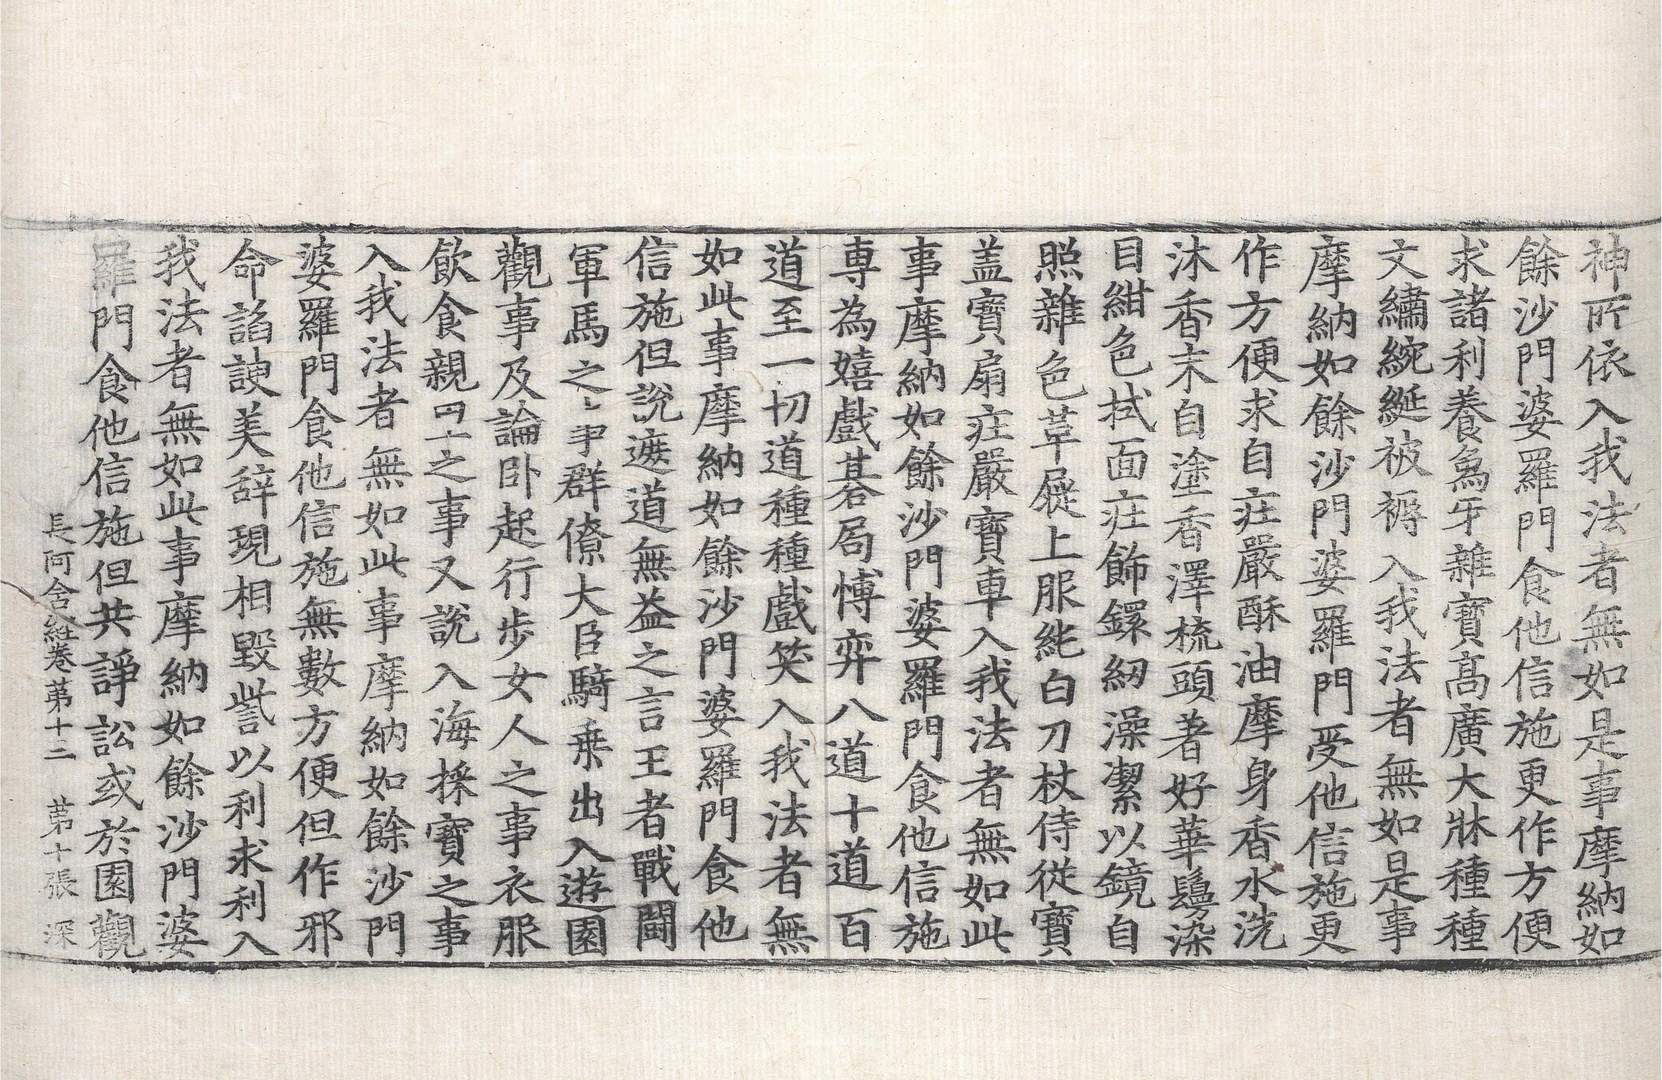 神所依入我法者無如是事摩納如
餘沙門婆羅門食他信施更作方便
求諸利養象牙雜寶高廣大牀種種
文繡綩綖被褥入我法者無如是事
摩納如餘沙門婆羅門受他信施更
作方便求自庄嚴酥油摩身香水洗
沐香末自塗香澤梳頭著好華鬘染
目紺色拭面庄飾鐶紉澡潔以鏡自
照雜色革屣上服純白刀杖侍從寶
盖寶扇庄嚴寶車入我法者無如此
事摩納如餘沙門婆羅門食他信施
專為嬉戲碁局博弈八道十道百
道至一切道種種戲笑入我法者無
如此事摩納如餘沙門婆羅門食他
信施但說遮道無益之言王者戰鬪
軍馬之事群僚大臣騎乗出入遊園
觀事及論卧起行步女人之事衣服
飲食親里之事又說入海採寶之事
入我法者無如此事摩納如餘沙門
婆羅門食他信施無數方便但作邪
命諂諛美辞現相毀訾以利求利入
我法者無如此事摩納如餘沙門婆
羅門食他信施但共諍訟或於園觀
長阿含經卷第十三 第十張 深